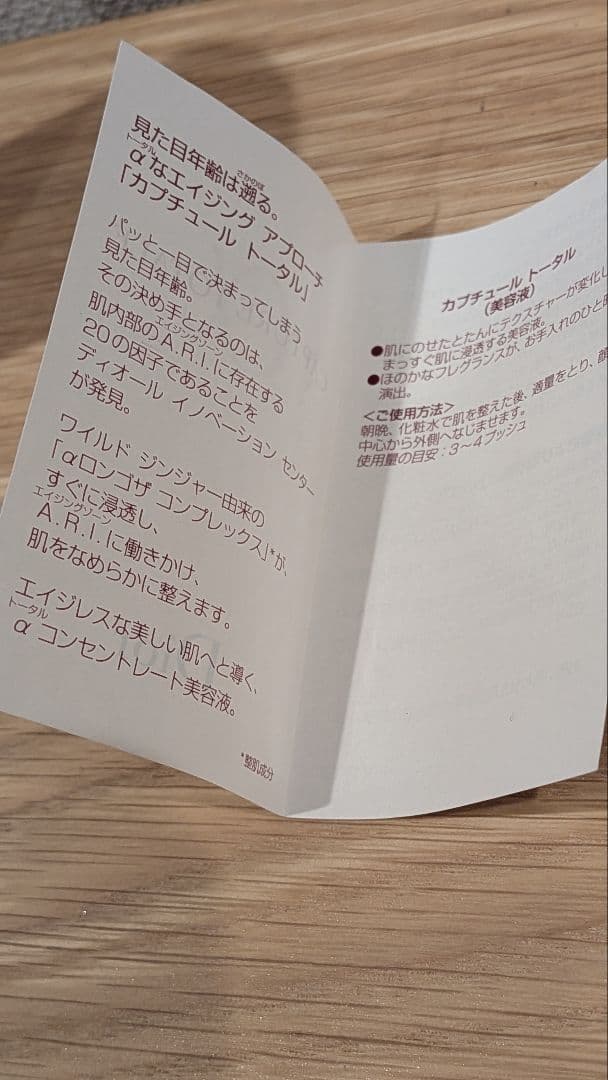 見た目年齢は遡る。
さかのぼ
αなエイジング アプローチ
トータル
「カプチュール トータル」
パッと一目で決まってしまう
見た目年齢。
その決め手となるのは、
肌内部のA.R.I.に存在する
エイジングゾーン
20の因子であることを
ディオール イノベーション センター
が発見。
ワイルド ジンジャー由来の
「αロンゴザ コンプレックス」*が、
すぐに浸透し、
A.R.I.に働きかけ、
エイジングゾーン
肌をなめらかに整えます。
エイジレスな美しい肌へと導く、
α コンセントレート美容液。
トータル
*整肌成分
カプチュール トータル
(美容液)
●肌にのせたとたんにテクスチャーが変化し
まっすぐ肌に浸透する美容液。
●ほのかなフレグランスが、お手入れのひと
演出。
<ご使用方法>
朝晩、化粧水で肌を整えた後、適量をとり、顔
中心から外側へなじませます。
使用量の目安:3～4プッシュ